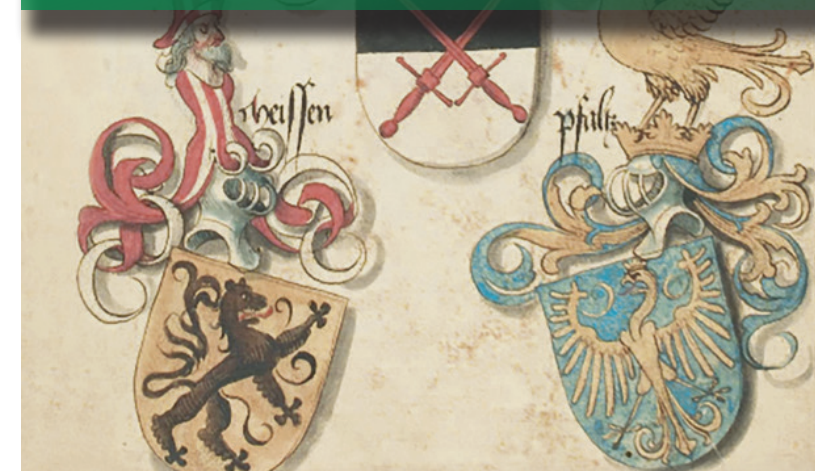 meissen
pfaltz